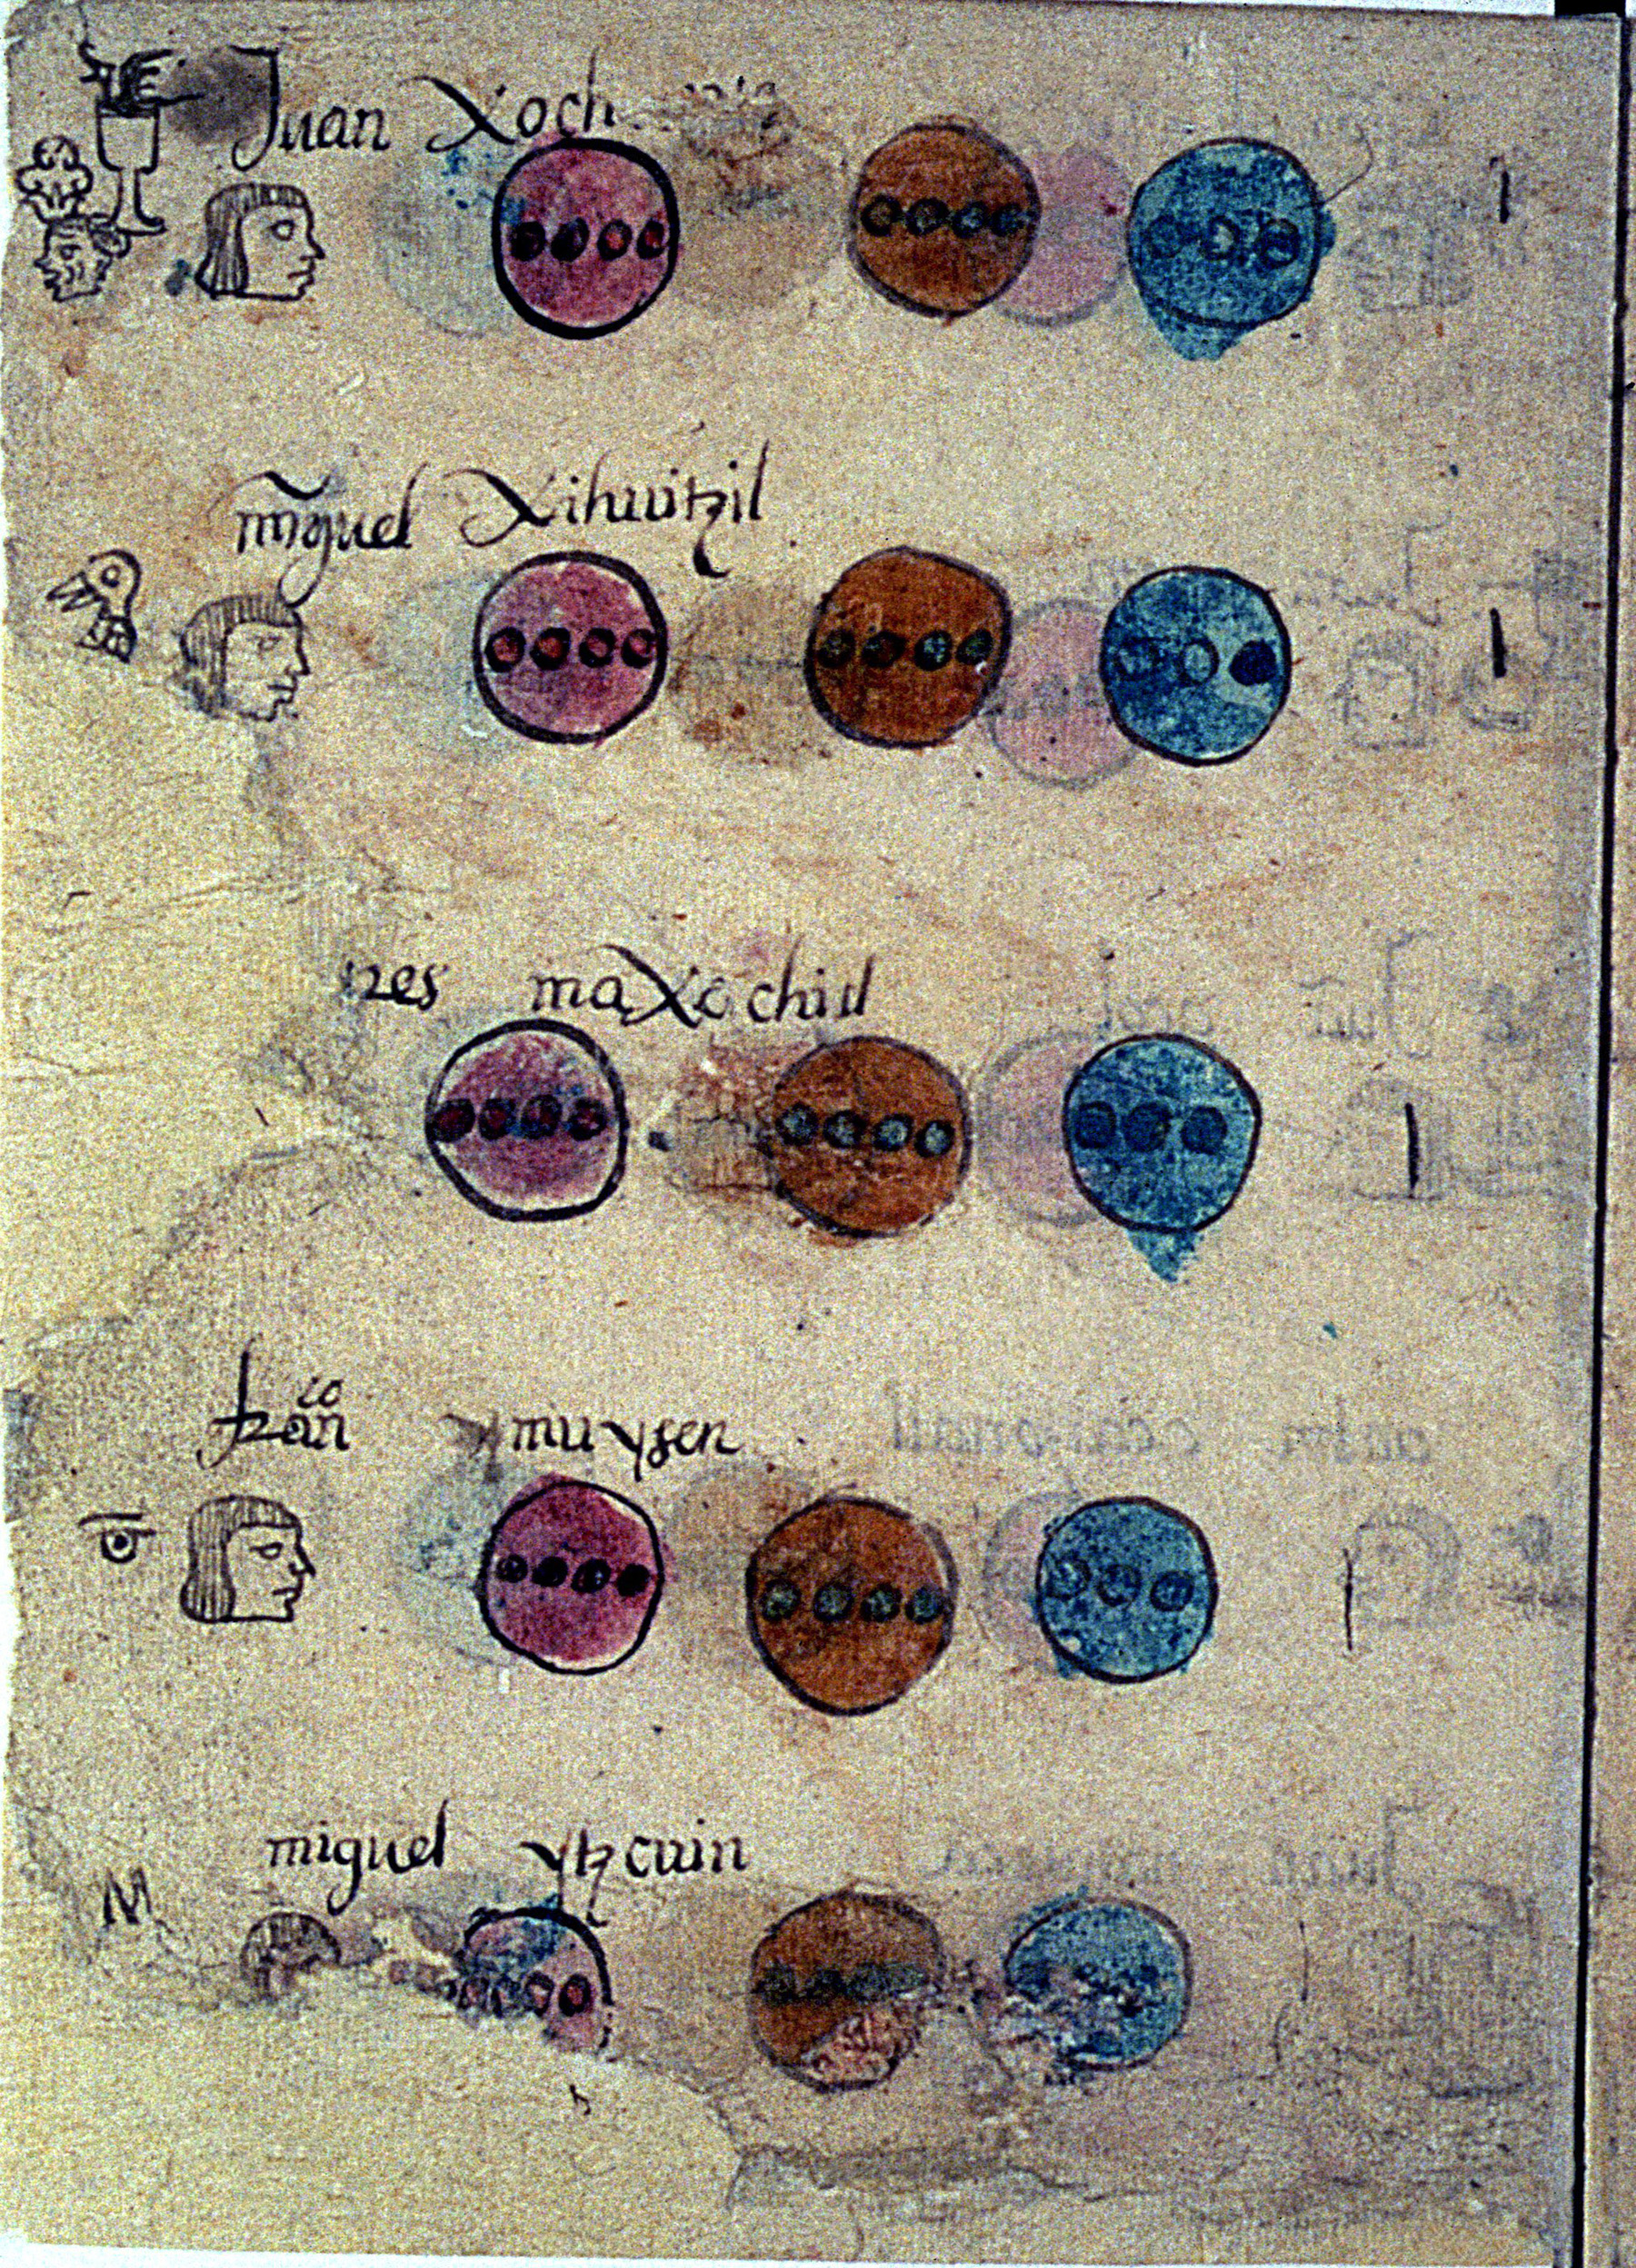 Juan Xoch
miguel Xihuitzil
res maxochitl
franco ymuysen
miguel ytzcuin